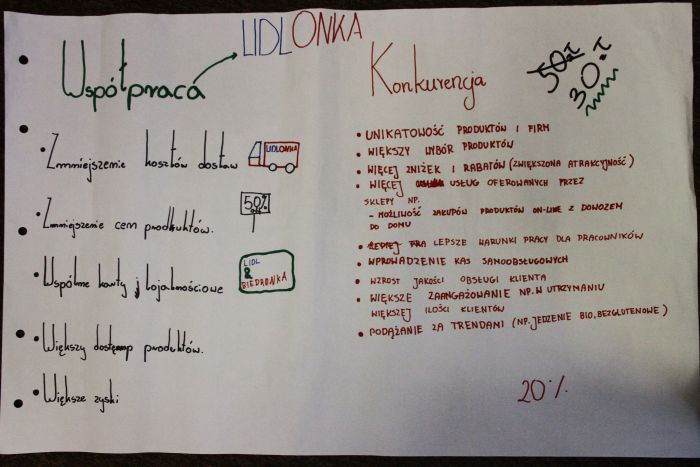 LIDLONKA
Współpraca
• Zmniejszenie kosztów dostaw
LIDLONKA
• Zmniejszenie cen produktów.
50%
• Wspólne karty lojalnościowe
LIDL
&
BIEDRONKA
• Większy dostęp produktów.
• Większe zyski
Konkurencja
50 zł
30 zł
• UNIKATOWOŚĆ PRODUKTÓW I FIRM
• WIĘKSZY WYBÓR PRODUKTÓW
• WIĘCEJ ZNIŻEK I RABATÓW (ZWIĘKSZONA ATRAKCYJNOŚĆ)
• WIĘCEJ USŁUG OFEROWANYCH PRZEZ
SKLEPY NP.
- MOŻLIWOŚĆ ZAKUPÓW PRODUKTÓW ON-LINE Z DOWOZEM
DO DOMU
• LEPSZE WARUNKI PRACY DLA PRACOWNIKÓW
• WPROWADZENIE KAS SAMOOBSŁUGOWYCH
• WZROST JAKOŚCI OBSŁUGI KLIENTA
• WIĘKSZE ZAANGAŻOWANIE NP. W UTRZYMANIU
WIĘKSZEJ ILOŚCI KLIENTÓW
• PODĄŻANIE ZA TRENDAMI (NP. JEDZENIE BIO, BEZGLUTENOWE)
20%